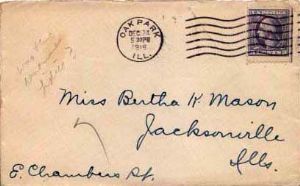 OAK PARK
DEC
5 30 PM
1918
ILL.
Miss Bertha K. Mason
Jacksonville
Ills.
E. Chambers St.